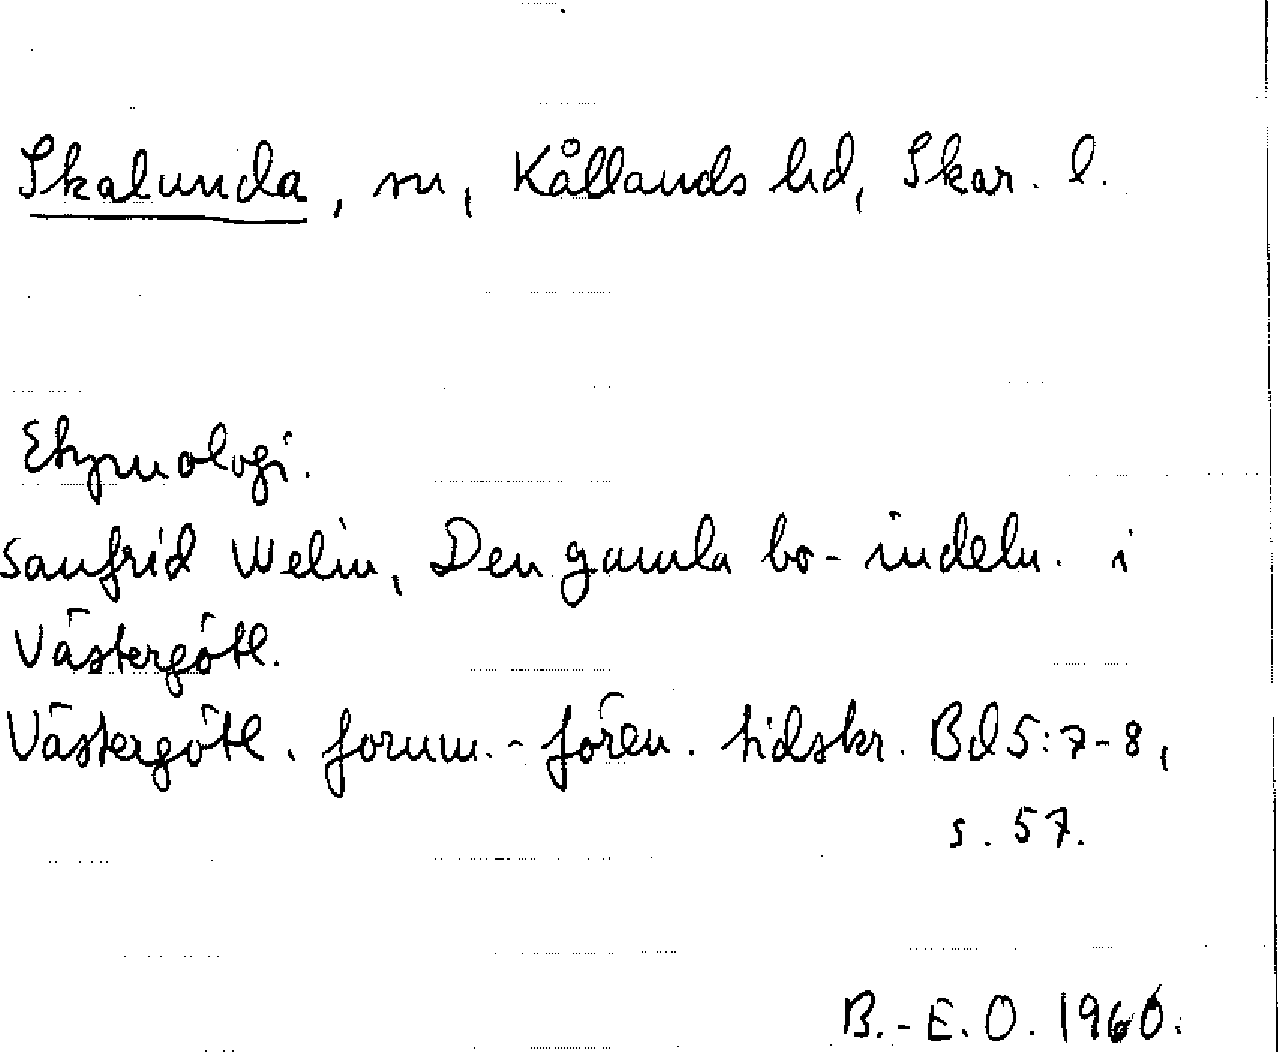 Skalunda, sn, Kållands hd, Skar. l.
Etymologi.
Sanfrid Welin, Den gamla bo-indeln. i
Västergötl.
Västergötl. fornm.-fören. tidskr. Bd 5:7-8,
s. 57.
B.-E. O. 1960.